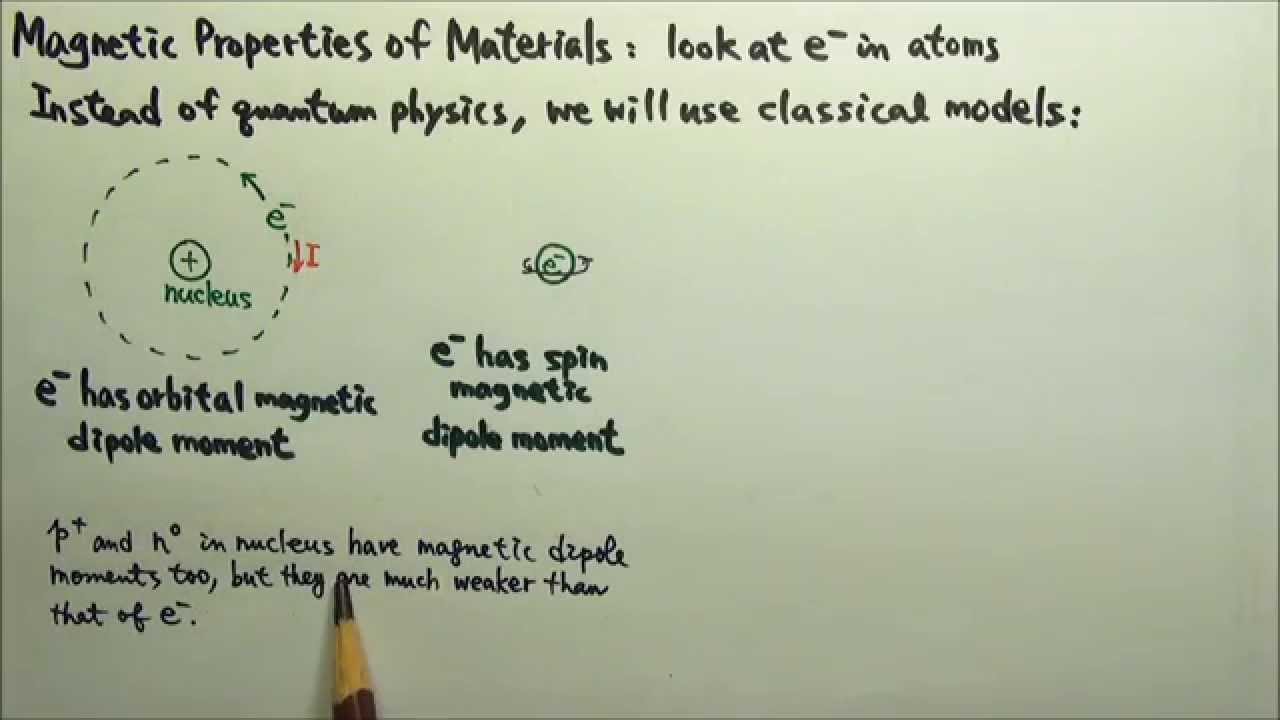 Magnetic Properties of Materials: look at e⁻ in atoms
Instead of quantum physics, we will use classical models:
e⁻
I
+
nucleus
e⁻
e⁻ has orbital magnetic
dipole moment
e⁻ has spin
magnetic
dipole moment
p⁺ and n⁰ in nucleus have magnetic dipole
moments too, but they are much weaker than
that of e⁻.